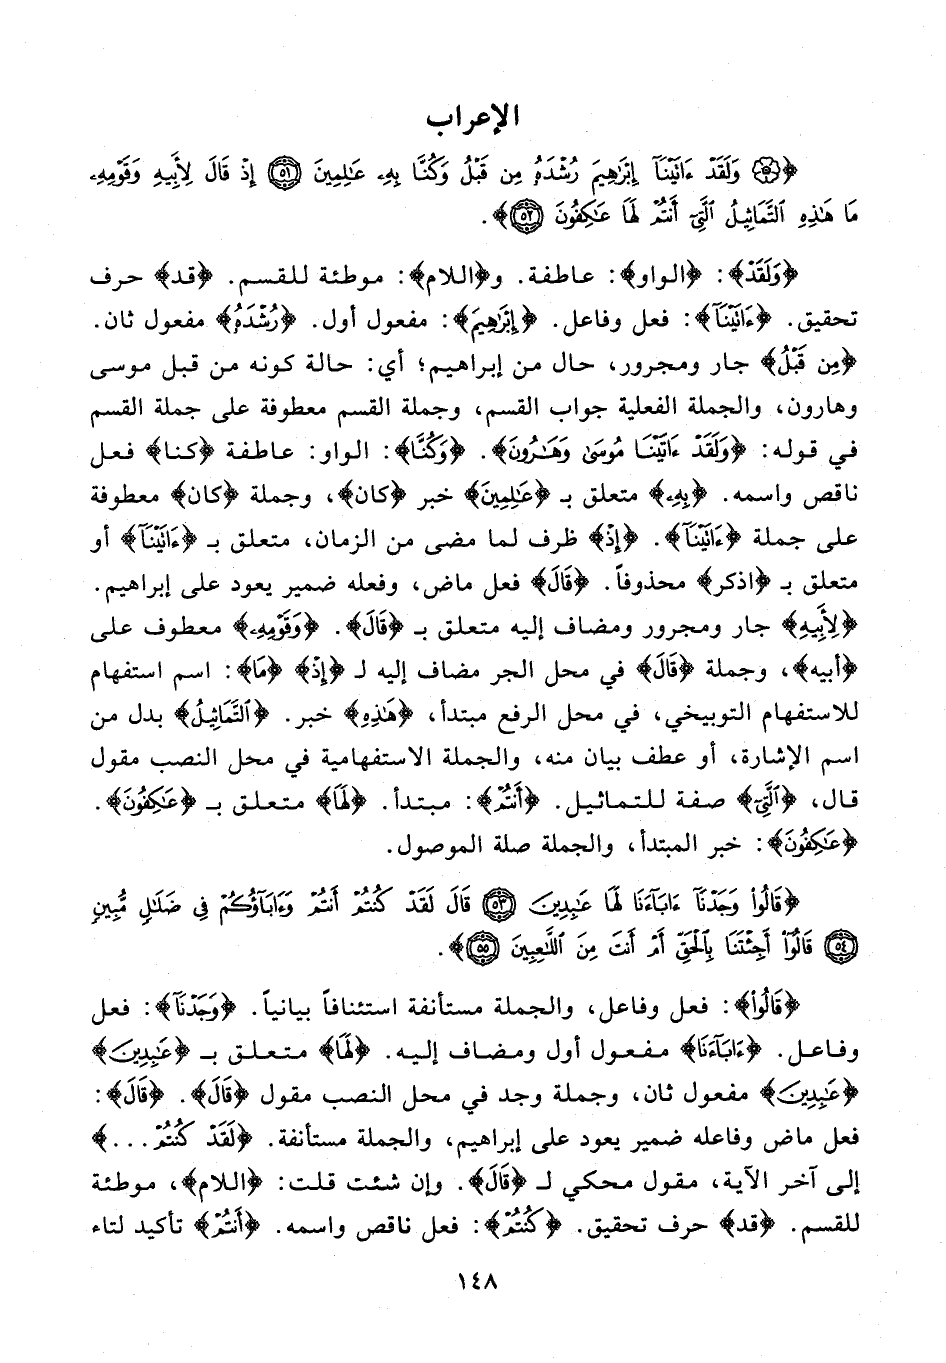 الإعراب
﴿۞ وَلَقَدْ ءَاتَيْنَآ إِبْرَٰهِيمَ رُشْدَهُۥ مِن قَبْلُ وَكُنَّا بِهِۦ عَٰلِمِينَ ٥١ إِذْ قَالَ لِأَبِيهِ وَقَوْمِهِۦ
مَا هَٰذِهِ ٱلتَّمَاثِيلُ ٱلَّتِىٓ أَنتُمْ لَهَا عَٰكِفُونَ ٥٢﴾.
﴿وَلَقَدْ﴾: ﴿الواو﴾: عاطفة. و﴿اللام﴾: موطئة للقسم. ﴿قد﴾ حرف
تحقيق. ﴿ءَاتَيْنَآ﴾: فعل وفاعل. ﴿إِبْرَٰهِيمَ﴾: مفعول أول. ﴿رُشْدَهُۥ﴾ مفعول ثان.
﴿مِن قَبْلُ﴾ جار ومجرور، حال من إبراهيم؛ أي: حالة كونه من قبل موسى
وهارون، والجملة الفعلية جواب القسم، وجملة القسم معطوفة على جملة القسم
في قوله: ﴿وَلَقَدْ ءَاتَيْنَا مُوسَىٰ وَهَٰرُونَ﴾. ﴿وَكُنَّا﴾: الواو: عاطفة ﴿كنا﴾ فعل
ناقص واسمه. ﴿بِهِۦ﴾ متعلق بـ ﴿عَٰلِمِينَ﴾ خبر ﴿كان﴾، وجملة ﴿كان﴾ معطوفة
على جملة ﴿ءَاتَيْنَآ﴾. ﴿إِذْ﴾ ظرف لما مضى من الزمان، متعلق بـ ﴿ءَاتَيْنَآ﴾ أو
متعلق بـ ﴿اذكر﴾ محذوفاً. ﴿قَالَ﴾ فعل ماض، وفعله ضمير يعود على إبراهيم.
﴿لِأَبِيهِ﴾ جار ومجرور ومضاف إليه متعلق بـ ﴿قَالَ﴾. ﴿وَقَوْمِهِۦ﴾ معطوف على
﴿أبيه﴾، وجملة ﴿قَالَ﴾ في محل الجر مضاف إليه لـ ﴿إِذْ﴾ ﴿مَا﴾: اسم استفهام
للاستفهام التوبيخي، في محل الرفع مبتدأ، ﴿هَٰذِهِ﴾ خبر. ﴿ٱلتَّمَاثِيلُ﴾ بدل من
اسم الإشارة، أو عطف بيان منه، والجملة الاستفهامية في محل النصب مقول
قال، ﴿ٱلَّتِىٓ﴾ صفة للتماثيل. ﴿أَنتُمْ﴾: مبتدأ. ﴿لَهَا﴾ متعلق بـ ﴿عَٰكِفُونَ﴾.
﴿عَٰكِفُونَ﴾: خبر المبتدأ، والجملة صلة الموصول.
﴿قَالُوا۟ وَجَدْنَآ ءَابَآءَنَا لَهَا عَٰبِدِينَ ٥٣ قَالَ لَقَدْ كُنتُمْ أَنتُمْ وَءَابَآؤُكُمْ فِى ضَلَٰلٍ مُّبِينٍ
٥٤ قَالُوٓا۟ أَجِئْتَنَا بِٱلْحَقِّ أَمْ أَنتَ مِنَ ٱللَّٰعِبِينَ ٥٥﴾.
﴿قَالُوا۟﴾: فعل وفاعل، والجملة مستأنفة استئنافاً بيانياً. ﴿وَجَدْنَآ﴾: فعل
وفاعل. ﴿ءَابَآءَنَا﴾ مفعول أول ومضاف إليه. ﴿لَهَا﴾ متعلق بـ ﴿عَٰبِدِينَ﴾
﴿عَٰبِدِينَ﴾ مفعول ثان، وجملة وجد في محل النصب مقول ﴿قَالَ﴾. ﴿قَالَ﴾:
فعل ماض وفاعله ضمير يعود على إبراهيم، والجملة مستأنفة. ﴿لَقَدْ كُنتُمْ...﴾
إلى آخر الآية، مقول محكي لـ ﴿قَالَ﴾. وإن شئت قلت: ﴿اللام﴾، موطئة
للقسم. ﴿قد﴾ حرف تحقيق. ﴿كُنتُمْ﴾: فعل ناقص واسمه. ﴿أَنتُمْ﴾ تأكيد لتاء
١٤٨